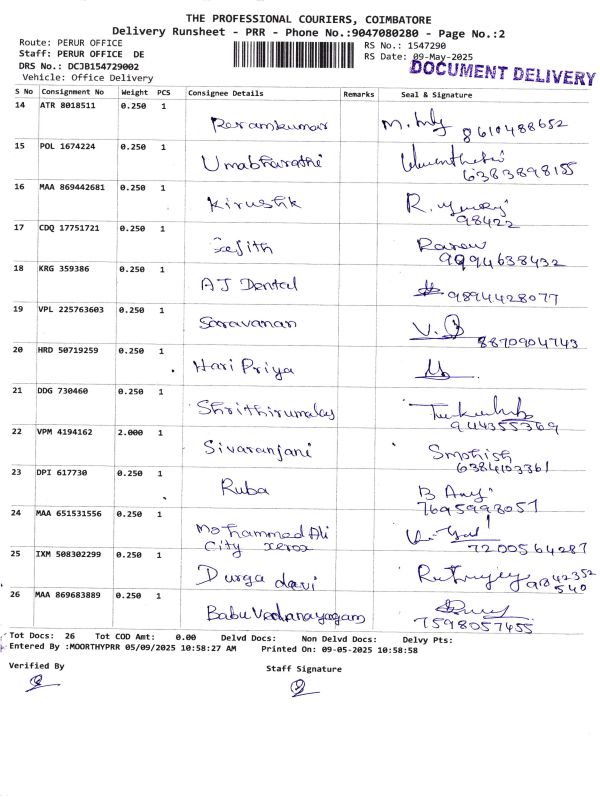 THE PROFESSIONAL COURIERS, COIMBATORE
Delivery Runsheet - PRR - Phone No.:9047080280 - Page No.:2
Route: PERUR OFFICE
Staff: PERUR OFFICE DE
DRS No.: DCJB154729002
Vehicle: Office Delivery
RS No.: 1547290
RS Date: 09-May-2025
DOCUMENT DELIVERY
S No Consignment No Weight PCS Consignee Details Remarks Seal & Signature
14 ATR 8018511 0.250 1
Ramkumar 8610488652
15 POL 1674224 0.250 1
Umabharathi 6383898155
16 MAA 869442681 0.250 1
Kirushik R. 98422
17 CDQ 17751721 0.250 1
9994638432
18 KRG 359386 0.250 1
AJ Dental 9894428077
19 VPL 225763603 0.250 1
Saravanan 8870904743
20 HRD 50719259 0.250 1
Hari Priya
21 DDG 730460 0.250 1
Shrithirumalas 944355369
22 VPM 4194162 2.000 1
Sivaranjani Smothish
6384103361
23 DPI 617730 0.250 1
Ruba 7695998057
24 MAA 651531556 0.250 1
Mohammed Ali
City xerox 7200564287
25 IXM 508302299 0.250 1
Durga davi 9842352
540
26 MAA 869683889 0.250 1
Babu Vedanayagam
7598057455
Tot Docs: 26 Tot COD Amt: 0.00 Delvd Docs: Non Delvd Docs: Delvy Pts:
Entered By :MOORTHYPRR 05/09/2025 10:58:27 AM Printed On: 09-05-2025 10:58:58
Verified By Staff Signature